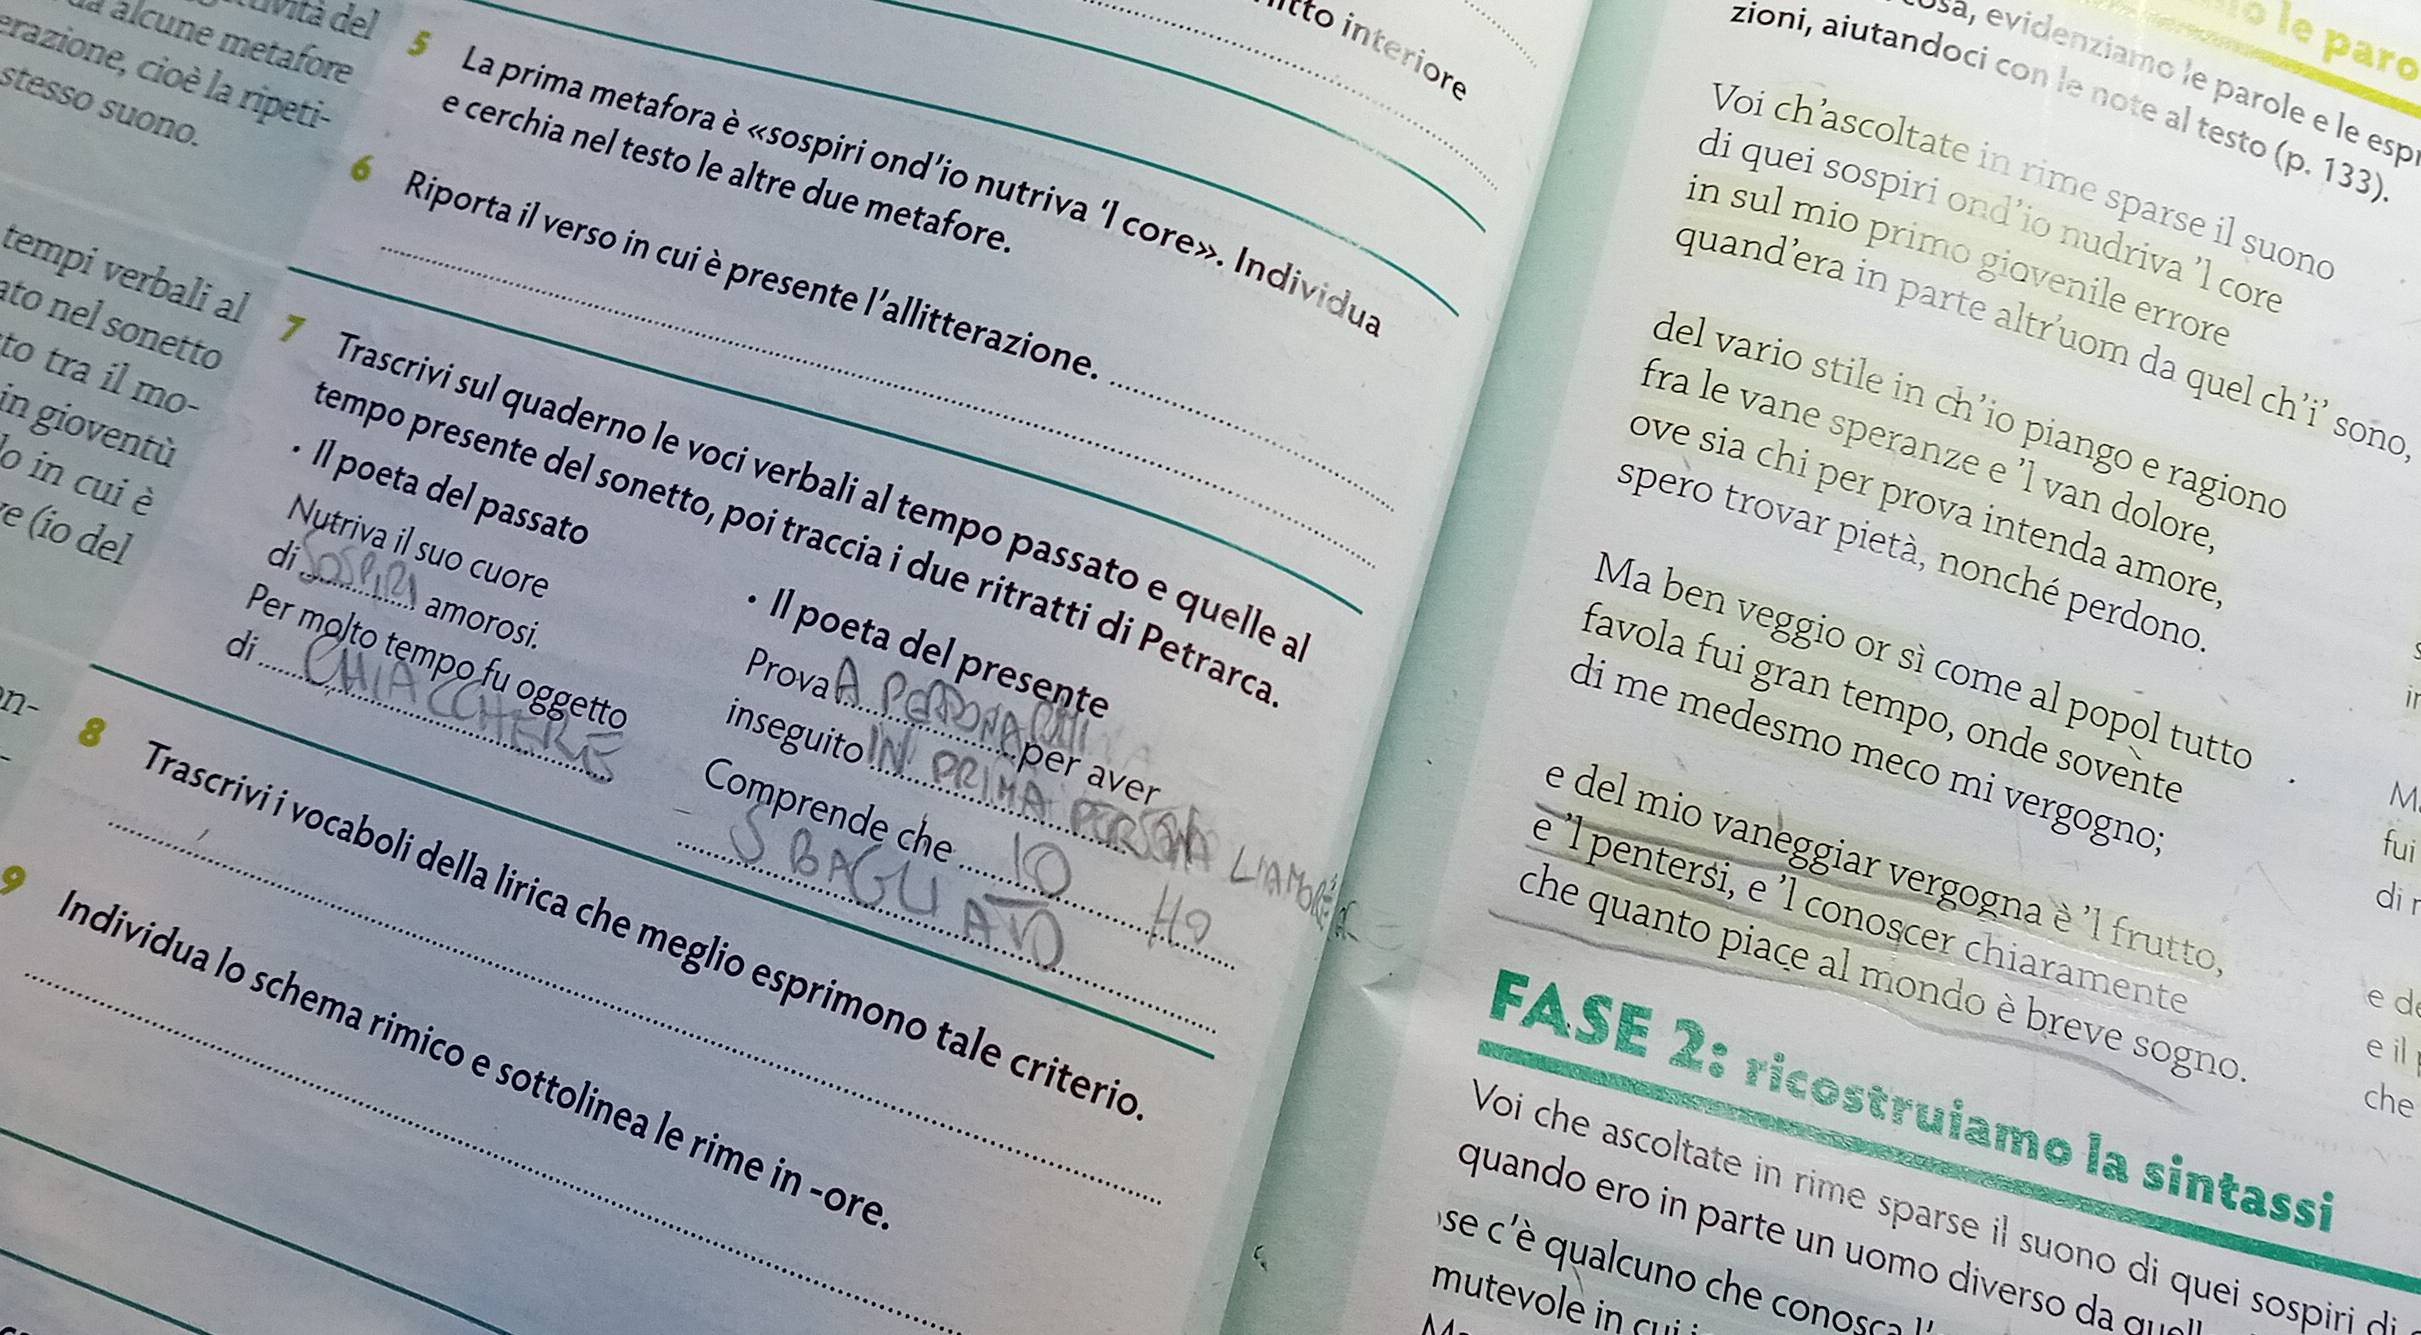 tività del
alcune metafore
erazione, cioè la ripeti-
stesso suono.
tempi verbali al
ato nel sonetto
to tra il mo-
in gioventù
lo in cui è
e (io del
n-
itto interiore
5 La prima metafora è «sospiri ond'io nutriva 'l core». Individua
e cerchia nel testo le altre due metafore.
6 Riporta il verso in cui è presente l'allitterazione.
7 Trascrivi sul quaderno le voci verbali al tempo passato e quelle al
tempo presente del sonetto, poi traccia i due ritratti di Petrarca.
• Il poeta del passato
Nutriva il suo cuore
di SOSPIRI amorosi.
Per molto tempo fu oggetto
di CHIACCHERE
• Il poeta del presente
Prova A per aver
inseguito IN PRIMA PERSONA L'AMORE
Comprende che IO HO
SBAGLIATO
8 Trascrivi i vocaboli della lirica che meglio esprimono tale criterio.
9 Individua lo schema rimico e sottolinea le rime in -ore.
le paro
evidenziamo le parole e le espr
zioni, aiutandoci con le note al testo (p. 133).
Voi ch'ascoltate in rime sparse il suono
di quei sospiri ond'io nudriva 'l core
in sul mio primo giovenile errore
quand'era in parte altr'uom da quel ch'i' sono,
del vario stile in ch'io piango e ragiono
fra le vane speranze e 'l van dolore,
ove sia chi per prova intenda amore,
spero trovar pietà, nonché perdono.
Ma ben veggio or sì come al popol tutto
favola fui gran tempo, onde sovente
di me medesmo meco mi vergogno;
e del mio vaneggiar vergogna è 'l frutto,
e 'l pentersi, e 'l conoscer chiaramente
che quanto piace al mondo è breve sogno.
fui
di
e de
e il
che
FASE 2: ricostruiamo la sintassi
Voi che ascoltate in rime sparse il suono di quei sospiri di
quando ero in parte un uomo diverso da quell
se c'è qualcuno che conosca l'
mutevole in cui